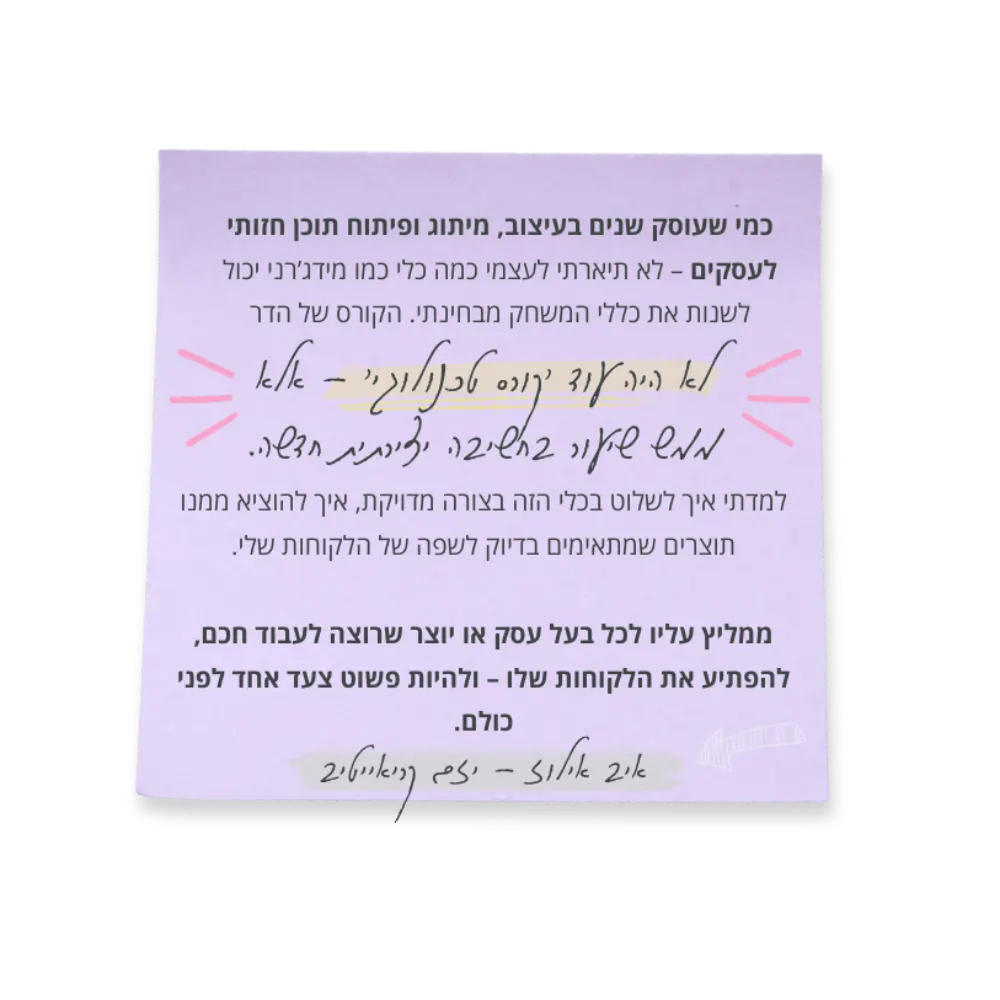 כמי שעוסק שנים בעיצוב, מיתוג ופיתוח תוכן חזותי
לעסקים – לא תיארתי לעצמי כמה כלי כמו מידג׳רני יכול
לשנות את כללי המשחק מבחינתי. הקורס של הדר
לא היה עוד 'קורס טכנולוגי' – אלא
ממש שיעור בחשיבה יצירתית חדשה.
למדתי איך לשלוט בכלי הזה בצורה מדויקת, איך להוציא ממנו
תוצרים שמתאימים בדיוק לשפה של הלקוחות שלי.
ממליץ עליו לכל בעל עסק או יוצר שרוצה לעבוד חכם,
להפתיע את הלקוחות שלו – ולהיות פשוט צעד אחד לפני
כולם.
איב אילוז – יזם קריאייטיב